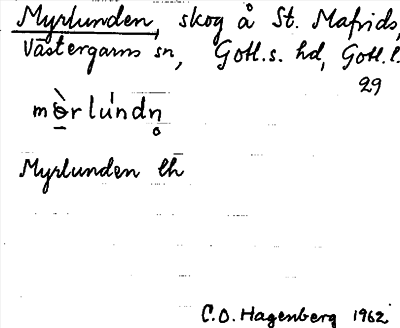 Myrlunden, skog å St. Mafrids,
Västergarns sn, Gotl.s. hd, Gotl.l.
29
mɵ̀rlúndn̥
Myrlunden lh
C.O. Hagenberg 1962